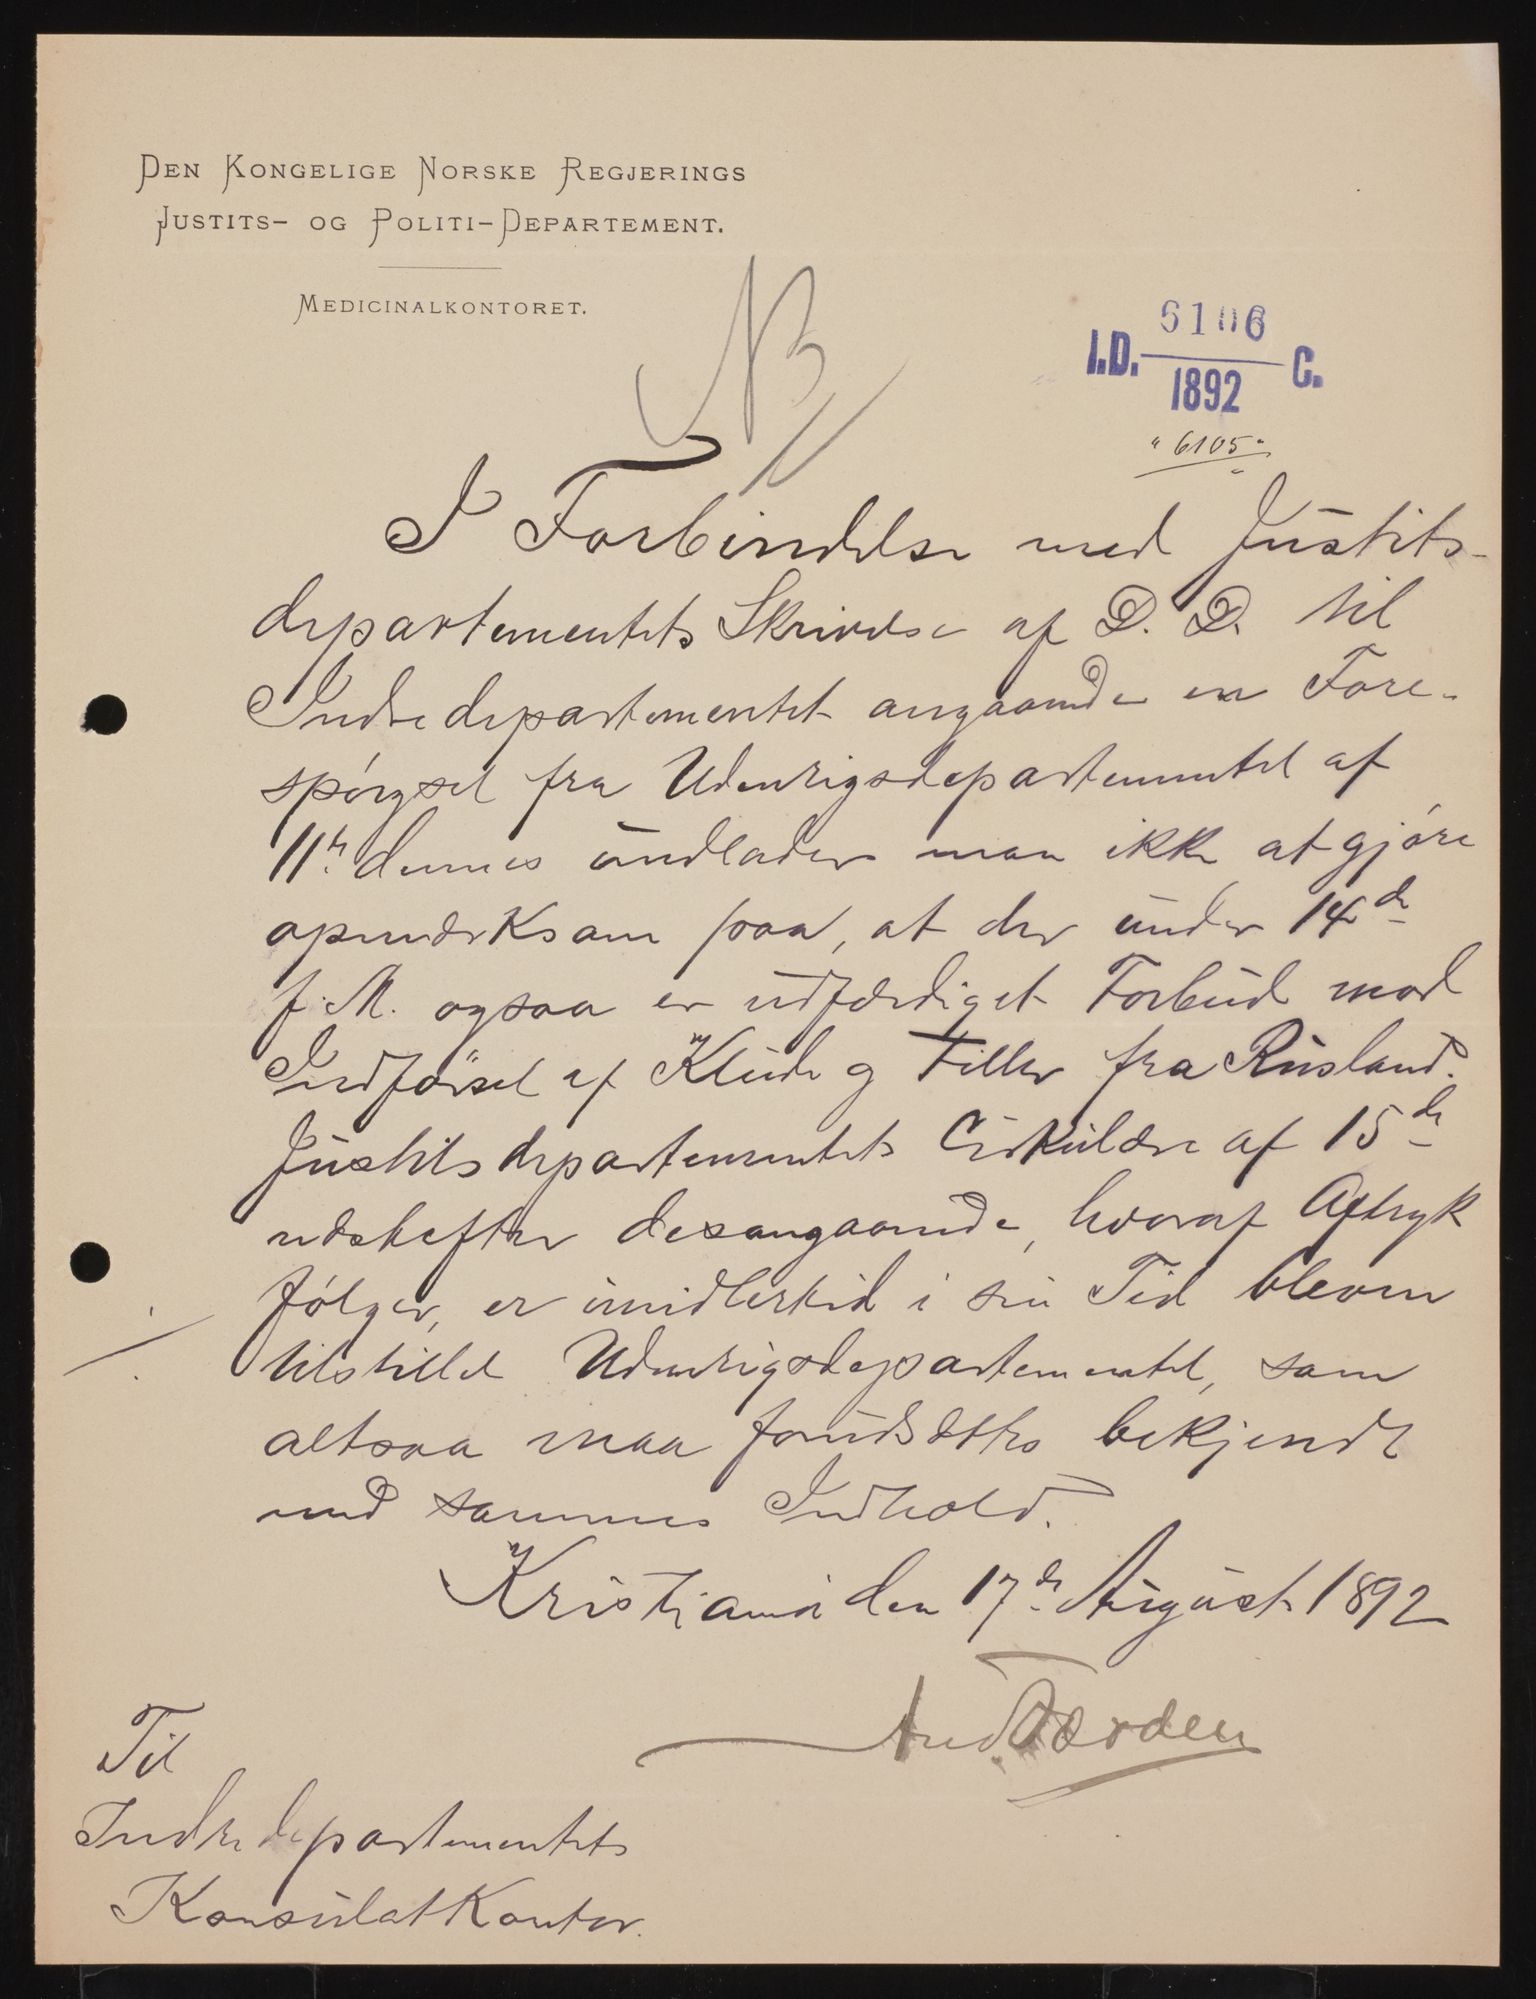 DEN KONGELIGE NORSKE REGJERINGS
JUSTITS- OG POLITI-DEPARTEMENT.
MEDICINALKONTORET.
NB
I.D. 6106 C.
1892
" 6105 "
I Forbindelse med Justits-
departementets Skrivelse af D. D. til
Indredepartementet angaaende en Fore-
spørgsel fra Udenrigsdepartementet af
11te dennes undlader man ikke at gjøre
opmærksom paa, at der under 14de
f. M. ogsaa er udfærdiget Forbud mod
Indførsel af Klude og Filler fra Rusland.
Justitsdepartementets Cirkulære af 15de
næstefter desangaaende, hvoraf Aftryk
følger, er imidlertid i sin Tid bleven
tilstillet Udenrigsdepartementet, som
altsaa maa forudsættes bekjendt
med sammes Indhold.
Kristiania den 17de August 1892
And Færden
Til
Indredepartementets
Konsulatkontor.